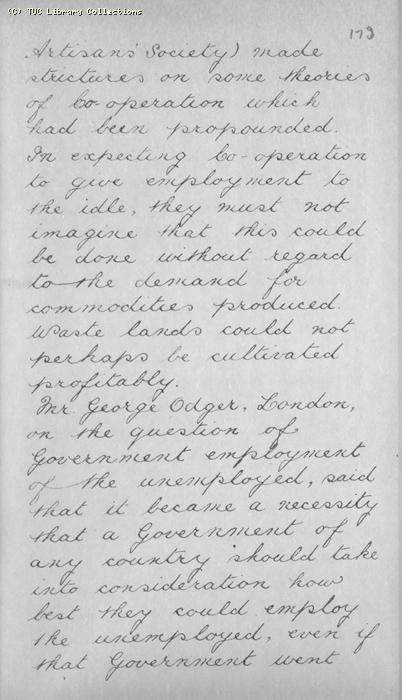 (C) TUC Library Collections
173
Artisans' Society) made
strictures on some theories
of Co-operation which
had been propounded.
In expecting Co-operation
to give employment to
the idle, they must not
imagine that this could
be done without regard
to the demand for
commodities produced.
Waste lands could not
perhaps be cultivated
profitably.
Mr. George Odger, London,
on the question of
Government employment
of the unemployed, said
that it became a necessity
that a Government of
any country should take
into consideration how
best they could employ
the unemployed, even if
that Government went